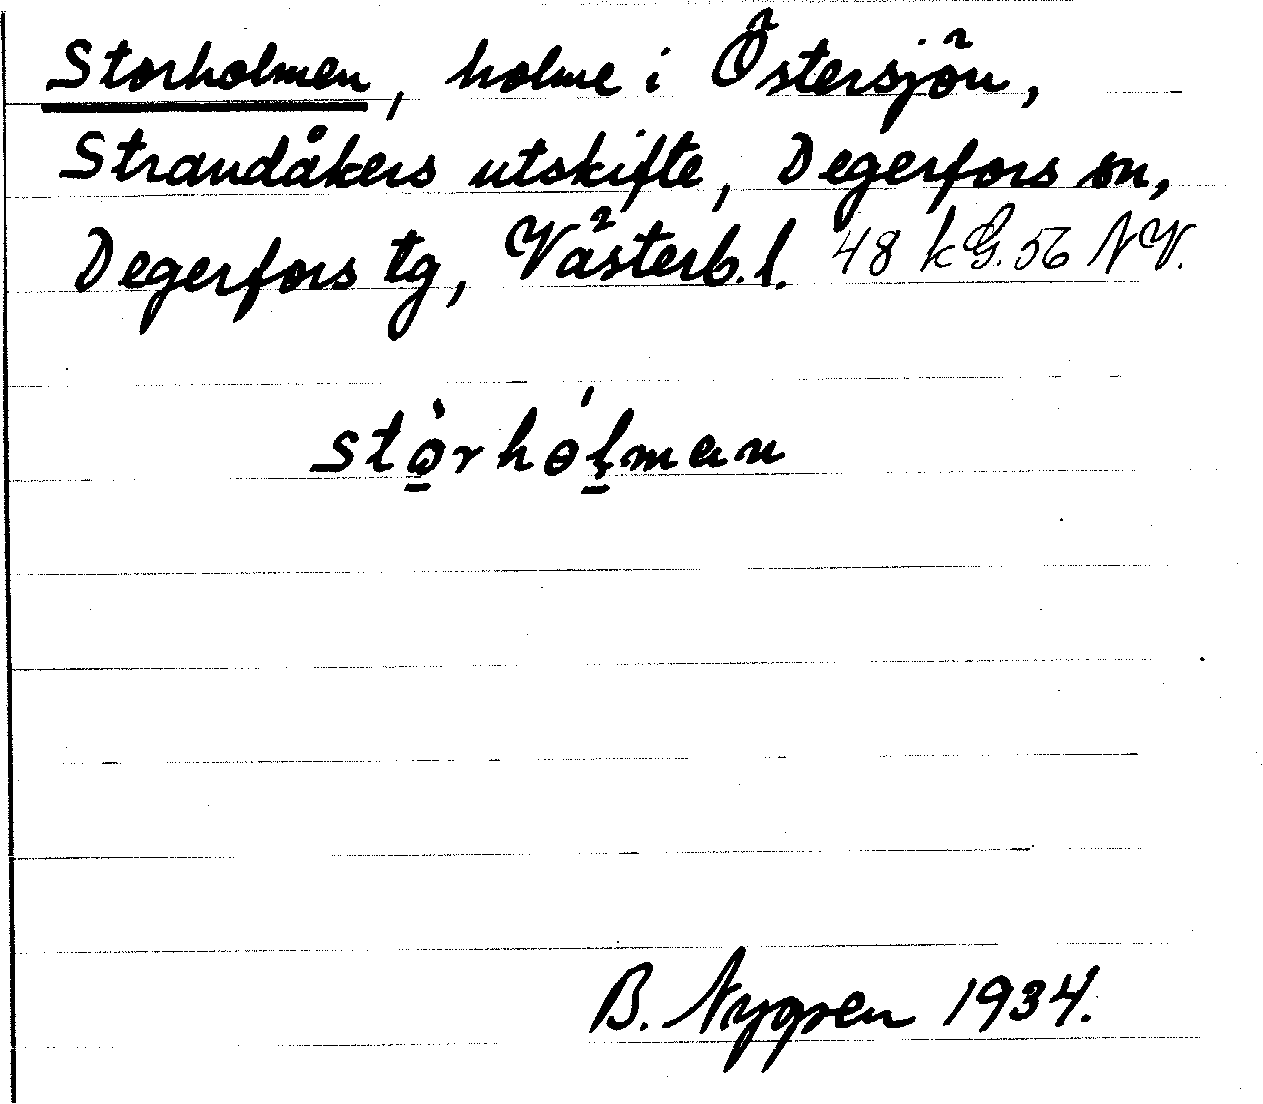 Storholmen, holme i Östersjön,
Strandåkers utskifte, Degerfors sn,
Degerfors tg, Västerb.l. 48 kG.56 NV.
stò̱rhóḻman
B. Nygren 1934.